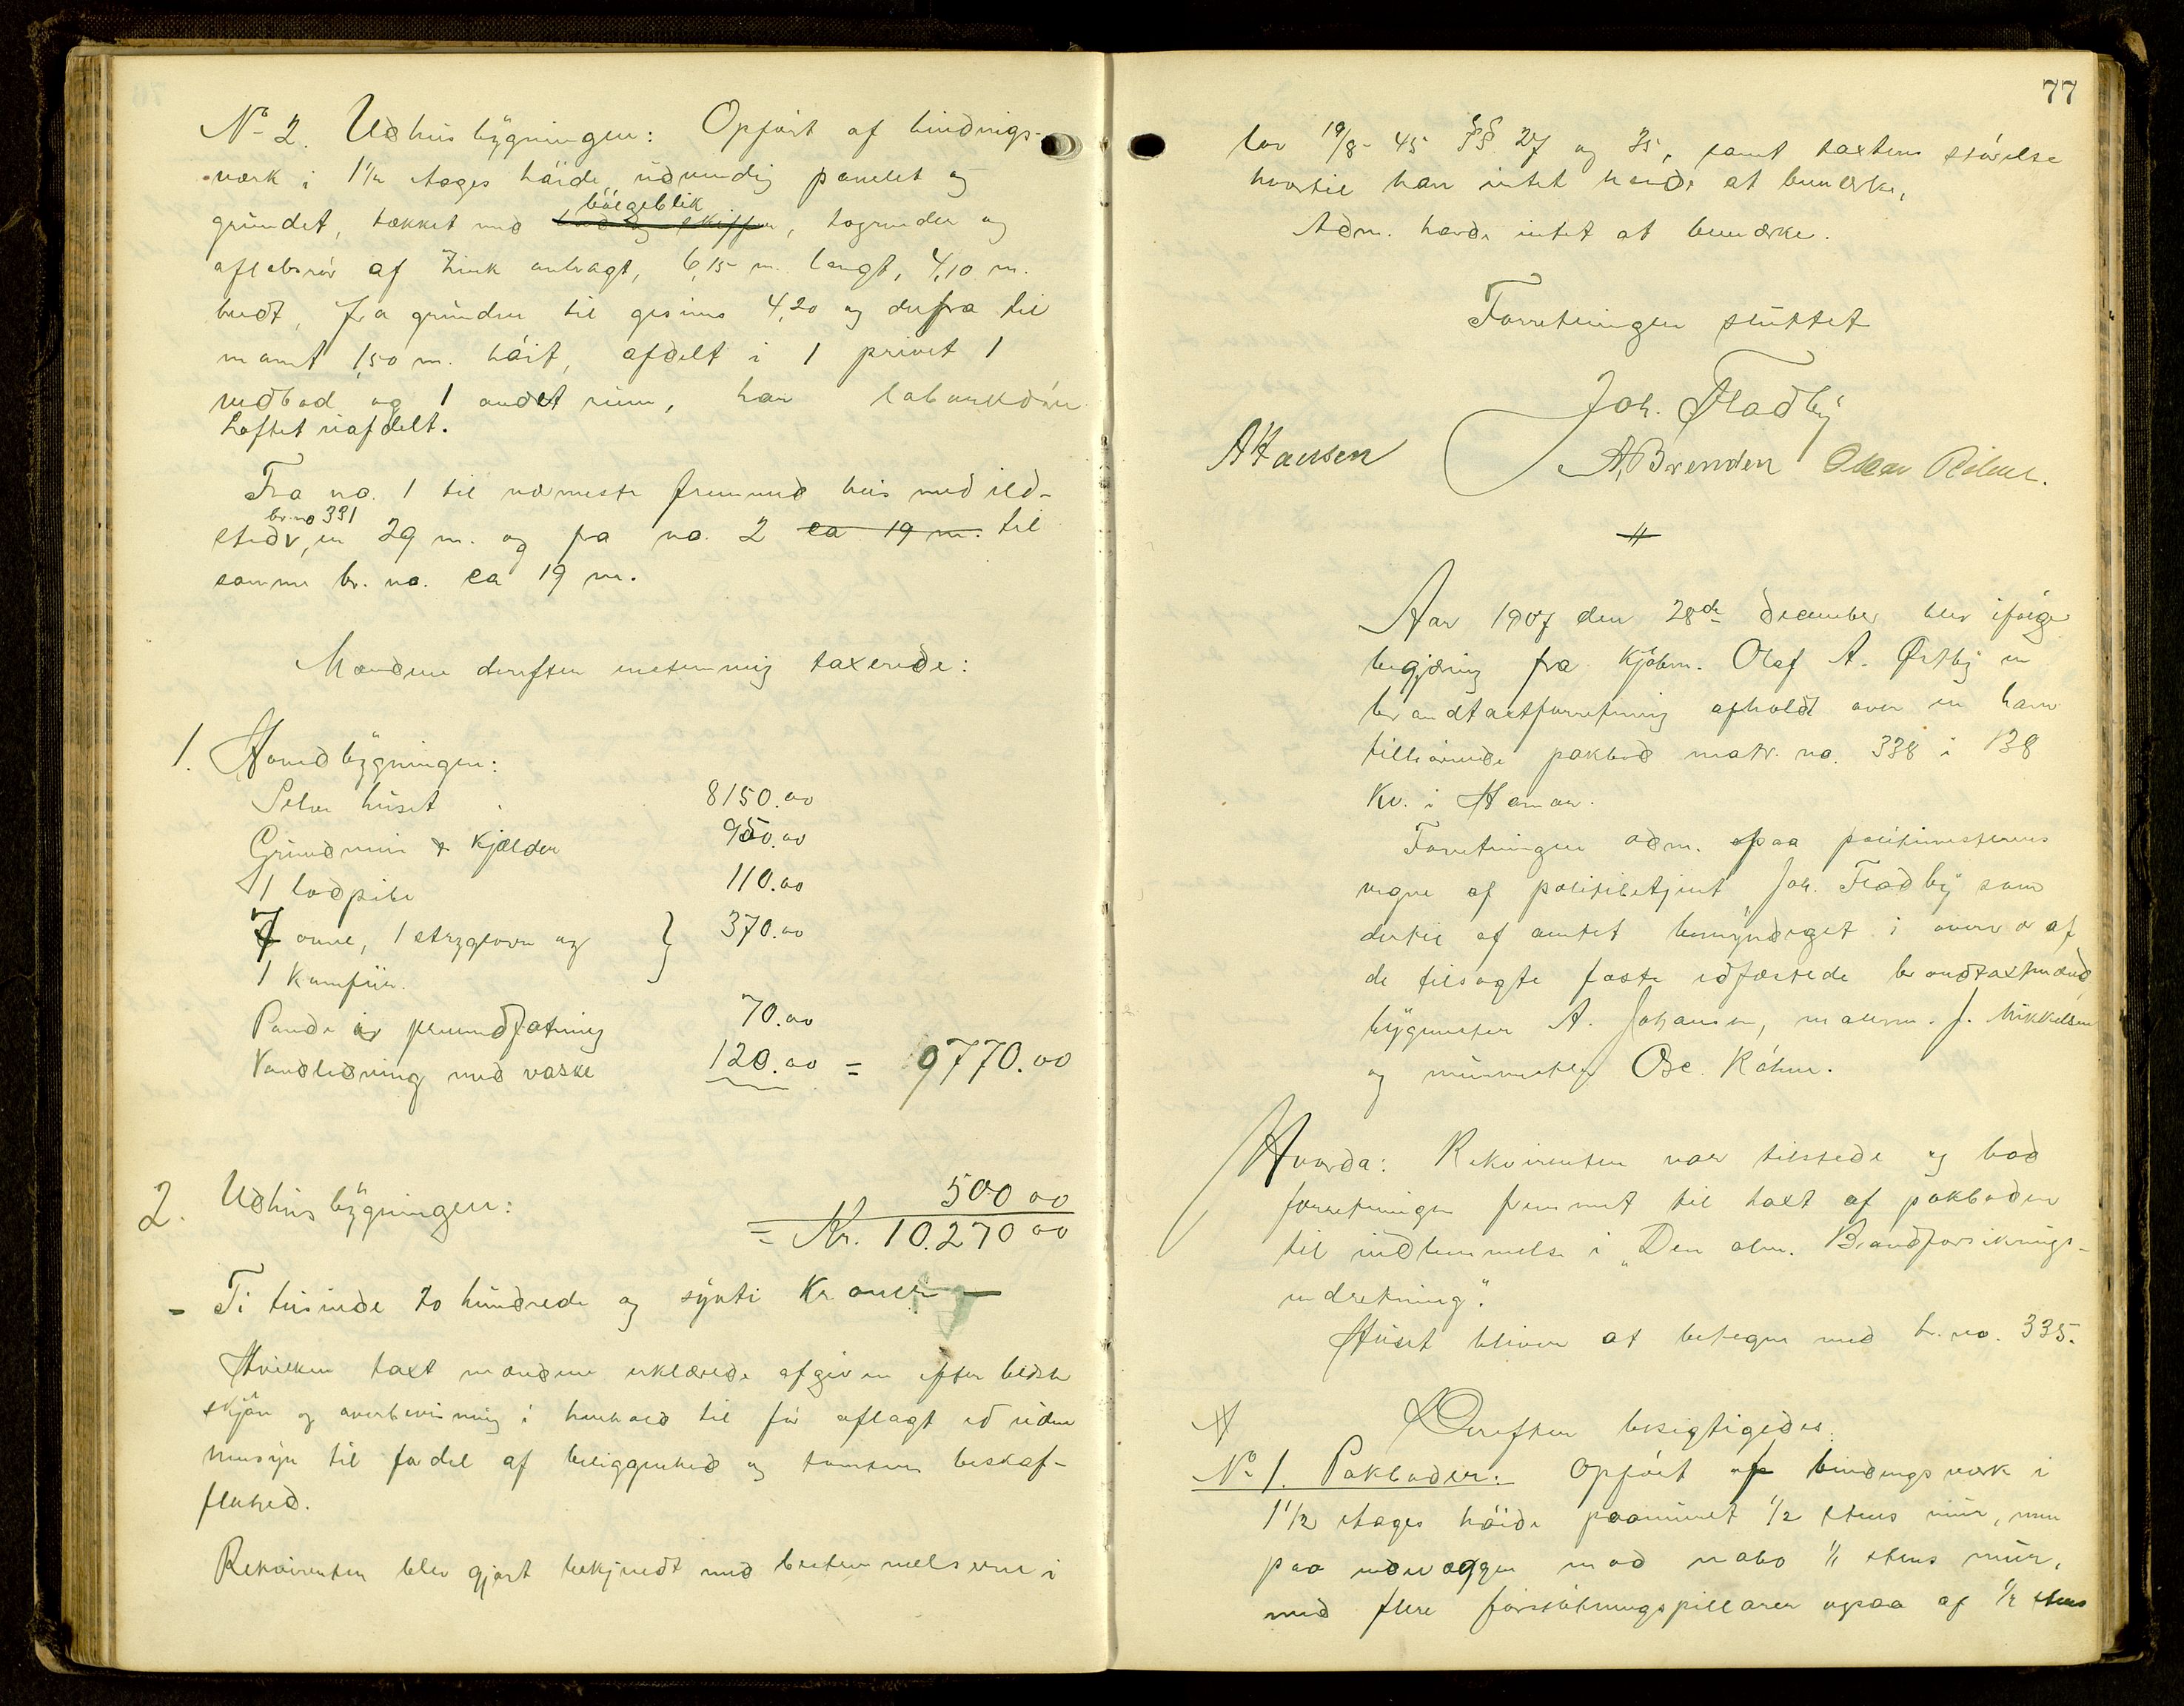 No 2. Udhusbygningen: Opført af bindings-
værk i 1 1/2 etages høide udvendig panelet og
grundet, tækket med bølgeblik, tagrender og
afløbsrør af Zink anbragt, 6,15 m. langt, 4,10 m.
bredt, fra grunden til gesims 4,20 og derfra til
mønet 1,50 m. høit, afdelt i 1 privet 1
vedbod og 1 andet rum, har labankdøre
Loftet uafdelt.
Fra no. 1 til nærmeste fremmed hus med ild-
sted br. no 331, er 29 m. og fra no. 2 ca 19 m. til
samme br. no. ca 19 m.
Mændene derefter enstemmig taxerede:
1. Hovedbygningen:
Selve huset 8150.00
Grundmur & kjælder 950.00
1 lodpibe 110.00
7 ovne, 1 strygeovn og } 370.00
1 Komfur.
Pande i jernindfatning 70.00
Vandledning med vaske 120.00 = 9770.00
2. Udhusbygningen: 500 00
= Kr. 10.270 00
= Ti tusinde to hundrede og sytti Kroner —
Hvilken taxt mændene erklærede afgiven efter bedste
skjøn og overbevisning i henhold til før aflagt ed uden
hensyn til fordel af beliggenhed og tomtens beskaf-
fenhed.
Rekvirenten blev gjort bekjendt med bestemmelserne i
77
lov 19/8-45 §§ 27 og 35, samt taxtens størelse
hvortil han intet havde at bemærke,
Adm. havde intet at bemærke.
Forretningen sluttet
Joh. Fladby
A Hansen A. Brenden Oscar Röhme.
=||=
Aar 1907 den 28de december blev ifølge
begjæring fra Kjøbm. Olaf A. Østby en
brandtaxtforretning afholdt over en ham
tilhørende pakbod matr. no. 338 i 138
Kv. i Hamar.
Forretningen adm. paa politimesterens
vegne af politibetjent Joh. Fladby som
dertil af amtet bemyndiget i overvær af
de tilsagte faste edfæstede brandtaxtmænd,
bygmester A. Johansen, malerm. J. Mikkelsen
og murmester Osc. Röhme.
Hvorda: Rekvirenten var tilstede og bad
forretningen fremmet til taxt af pakboden
til indlemmelse i "Den alm. Brandforsikrings-
indretning".
Huset bliver at betegne med br. no. 335.
Derefter besigtigedes:
No 1. Pakboden: Opført af bindingsværk i
1 1/2 etages høide paamuret 1/2 stens mur, men
paa endevæggen mod nabo 1/1 stens mur,
med flere forstærkningspillarer ogsaa af 1/2 stens